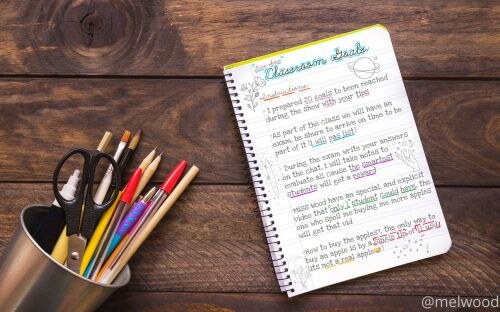 Classroom Goals
Instructions:
· I prepared 20 goals to been reached
during the show with your tips
· As part of the class we will have an
exam, be shure to arrive on time to be
part of it (I will pas list)
· During the exam write your answers
on the Chat, I will take notes to
evaluate all cause the smartest
students will get a reward
· Miss Wood have an special, and explicit
video that only 1 student could have, the
one who spoil me buying me more apples
will get that vid
How to buy the apples?, the only way to
buy an apple is by a single tip of
(its not a real apple
@melwood